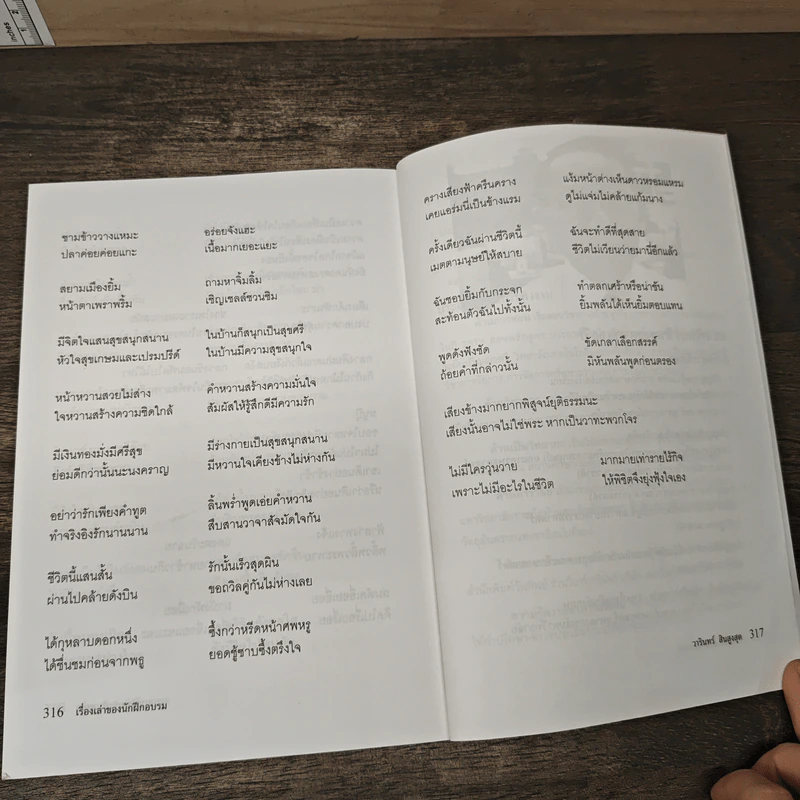 inches
1
2
ชามข้าววางแหมะ อร่อยจังแฮะ
ปลาค่อยค่อยแกะ เนื้อมากเยอะแยะ
สยามเมืองยิ้ม ถามหาจิ้มลิ้ม
หน้าตาเพราพริ้ม เชิญเซลล์ชวนชิม
มีจิตใจแสนสุขสนุกสนาน ในบ้านก็สนุกเป็นสุขศรี
หัวใจสุขเกษมและเปรมปรีด์ ในบ้านมีความสุขสนุกใจ
หน้าหวานสวยไม่สร่าง คำหวานสร้างความมั่นใจ
ใจหวานสร้างความชิดใกล้ สัมผัสให้รู้สึกดีมีความรัก
มีเงินทองมั่งมีศรีสุข มีร่างกายเป็นสุขสนุกสนาน
ย่อมดีกว่านั้นนะนงคราญ มีหวานใจเคียงข้างไม่ห่างกัน
อย่าว่ารักเพียงคำทูต ลิ้นพร่ำพูดเอ่ยคำหวาน
ทำจริงอิงรักนานนาน สืบสานวาจาสัจมัดใจกัน
ชีวิตนี้แสนสั้น รักนั้นเร็วสุดผิน
ผ่านไปคล้ายดังบิน ขอถวิลคู่กันไม่ห่างเลย
ได้กุหลาบดอกหนึ่ง ซึ้งกว่าหรีดหน้าศพหรู
ได้ชื่นชมก่อนจากพธู ยอดชู้ซาบซึ้งตรึงใจ
316 เรื่องเล่าของนักฝึกอบรม
ครางเสียงฟ้าครืนคราง แง้มหน้าต่างเห็นดาวหรอมแหรม
เคยแอร่มนี่เป็นข้างแรม ดูไม่แจ่มไม่คล้ายแก้มนาง
ครั้งเดียวฉันผ่านชีวิตนี้ ฉันจะทำดีที่สุดสาย
เมตตามนุษย์ให้สบาย ชีวิตไม่เวียนว่ายมานี่อีกแล้ว
ฉันชอบยิ้มกับกระจก ทำตลกเศร้าหรือน่าขัน
สะท้อนตัวฉันไปทั้งนั้น ยิ้มพลันได้เห็นยิ้มตอบแทน
พูดดังฟังชัด ขัดเกลาเลือกสรรค์
ถ้อยคำที่กล่าวนั้น มิหันพลันพูดก่อนตรอง
เสียงข้างมากยากพิสูจน์ยุติธรรมนะ
เสียงนั้นอาจไม่ใช่พระ หากเป็นวาทะพวกโจร
ไม่มีใครวุ่นวาย มากมายเท่ารายไร้กิจ
เพราะไม่มีอะไรในชีวิต ให้พิชิตจึงยุ่งฟุ้งใจเอง
วารินทร์ สินสูงสุด 317